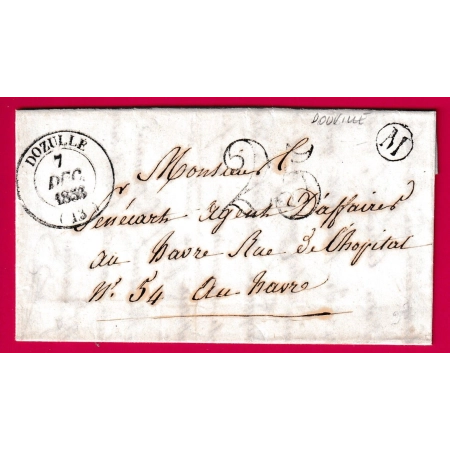 DOUVILLE
DOZULLÉ
7
DEC.
1853
(13)
25
M
Monsieur
Sénécart Agent D'affaires
au havre Rue de l'hopital
N° 54 Au havre